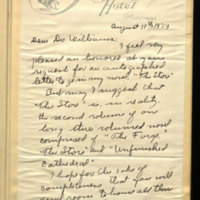 Hotel
August 11th 1934
Dear Dr Williams:
I feel very
pleased an honored at your
request for an autographed
letter to go in my novel, "The Store"
But may I suggest that
"The Store" is, in reality,
the second volume of one
long three volumned novel
composed of "The Forge,
"The Store" and "Unfinished
Cathedral."
I hope for the sake of
completeness that you will
find room to house all three